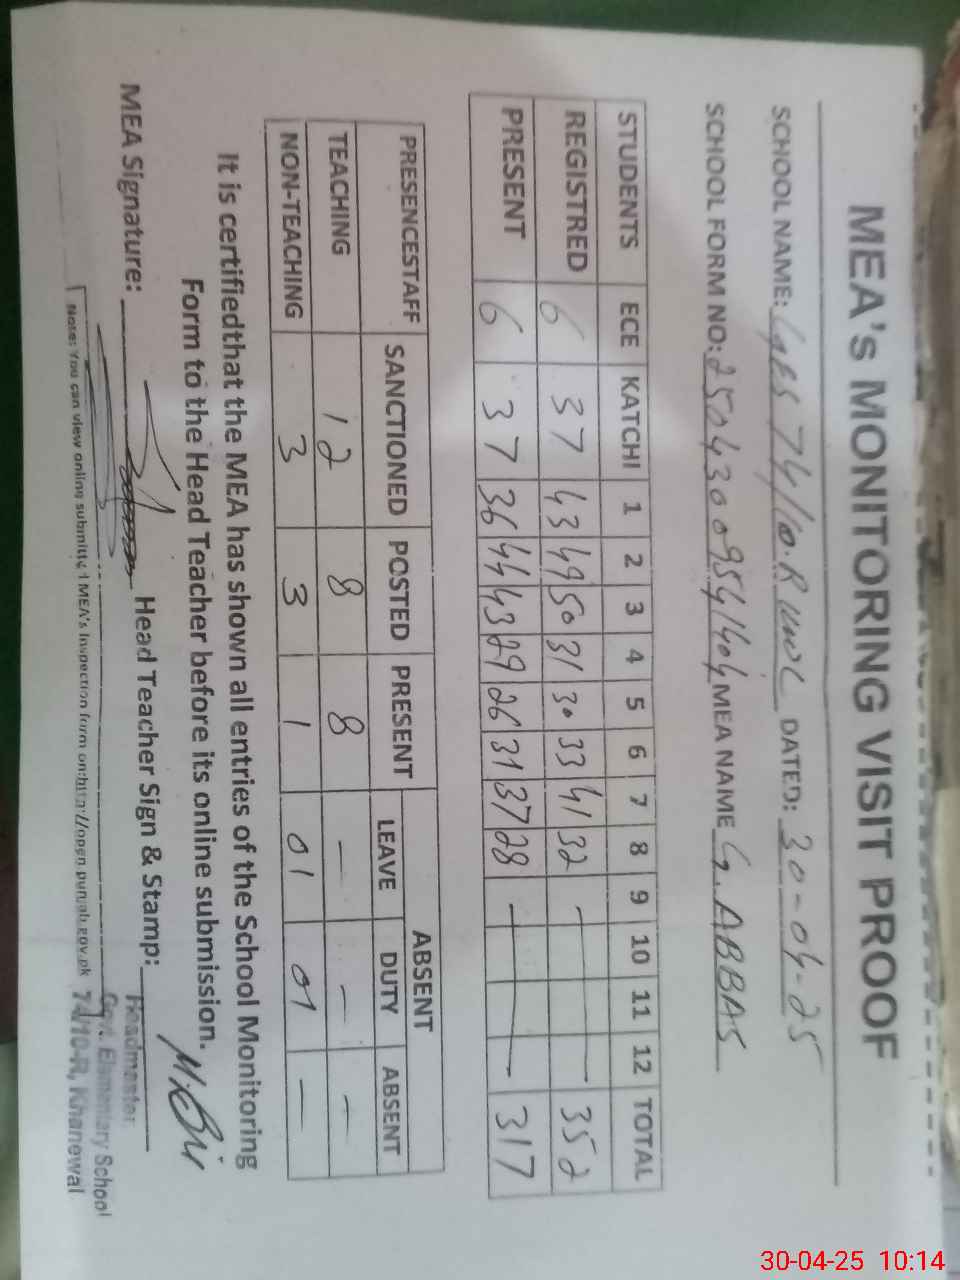 MEA's MONITORING VISIT PROOF
SCHOOL NAME: GES 74/10.R DATED: 30-04-25
SCHOOL FORM NO: MEA NAME G. ABBAS
STUDENTS ECE KATCHI 1 2 3 4 5 6 7 8 9 10 11 12 TOTAL
REGISTRED 6 37 43 49 50 31 30 33 41 32 — 352
PRESENT 6 37 36 44 43 29 26 31 37 28 — 317
ABSENT
PRESENCESTAFF SANCTIONED POSTED PRESENT LEAVE DUTY ABSENT
TEACHING 12 8 8 — — —
NON-TEACHING 3 3 1 01 01 —
It is certifiedthat the MEA has shown all entries of the School Monitoring
Form to the Head Teacher before its online submission.
MEA Signature: Head Teacher Sign & Stamp:
Headmaster
Govt. Elementary School
74/10-R, Khanewal
Note: You can view online submitted MEA's Inspection form on:http://open.punjab.gov.pk
30-04-25 10:14